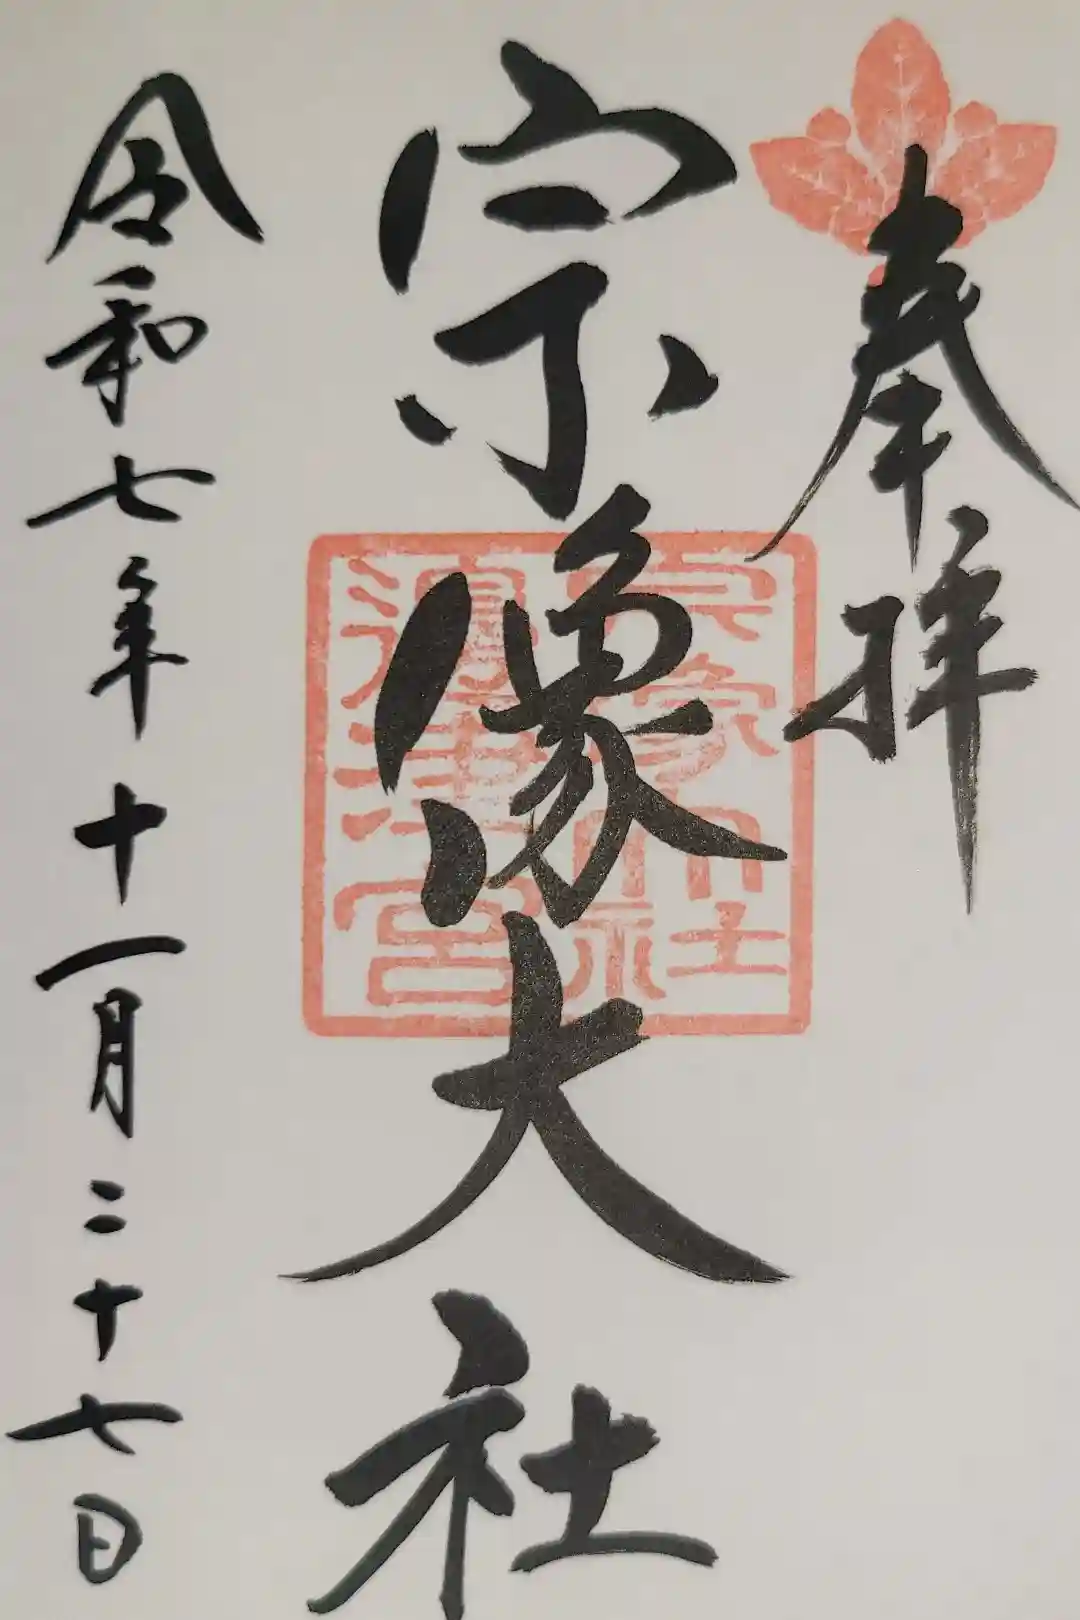 奉拝
宗像大社
宗像大社
邊津宮
令和七年十一月二十七日